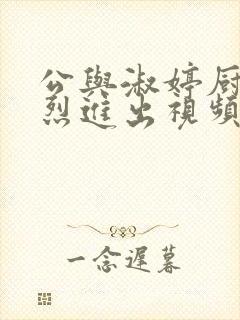 公與淑婷厨
烈進出視頻
一念遲暮